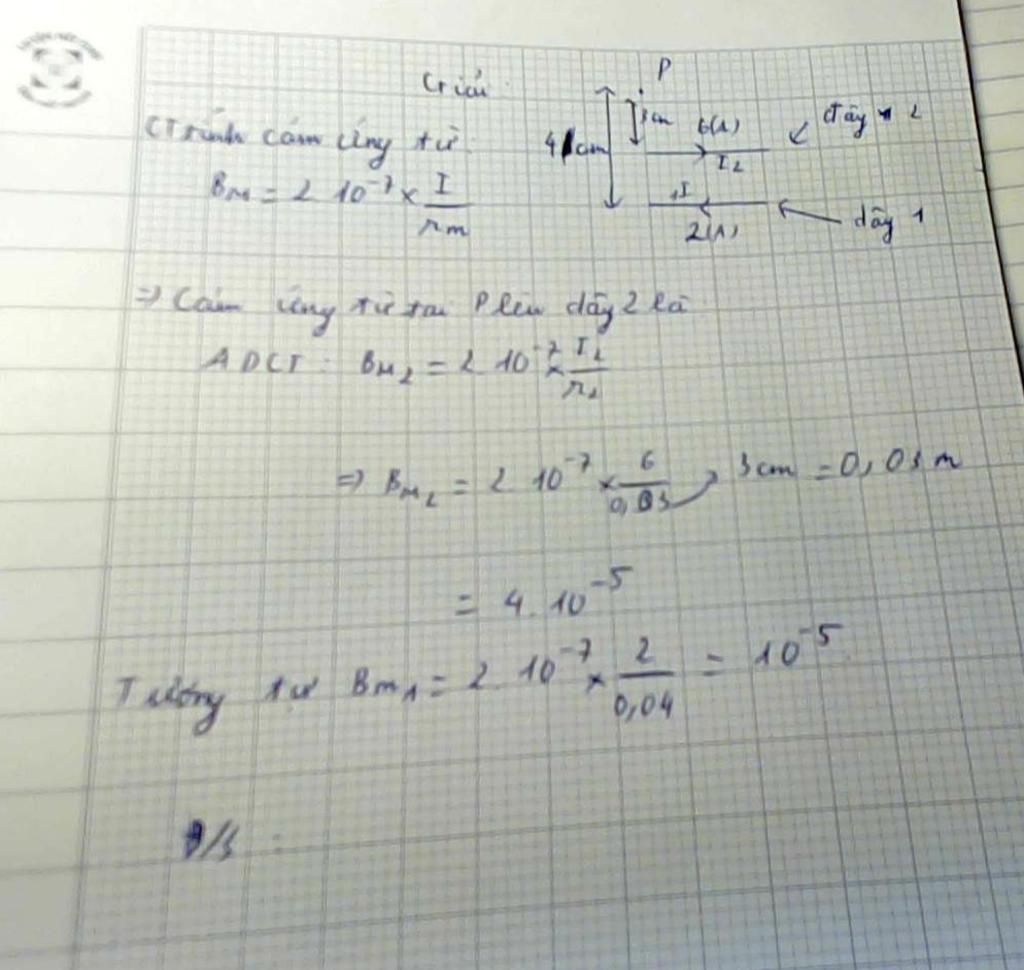 Giải
P
3cm
4 cm
6(A)
I2
dây 2
I
2(A)
dây 1
CT tính cảm ứng từ:
BM = 2 10^-7 × I/rm
=> Cảm ứng từ tại P lên dây 2 là
ADCT: BM2 = 2 10^-7 × I2/r2
=> BM2 = 2 10^-7 × 6/0,03 3cm = 0,03 m
= 4.10^-5
Tương tự BM1 = 2.10^-7 × 2/0,04 = 10^-5
Đ/s: